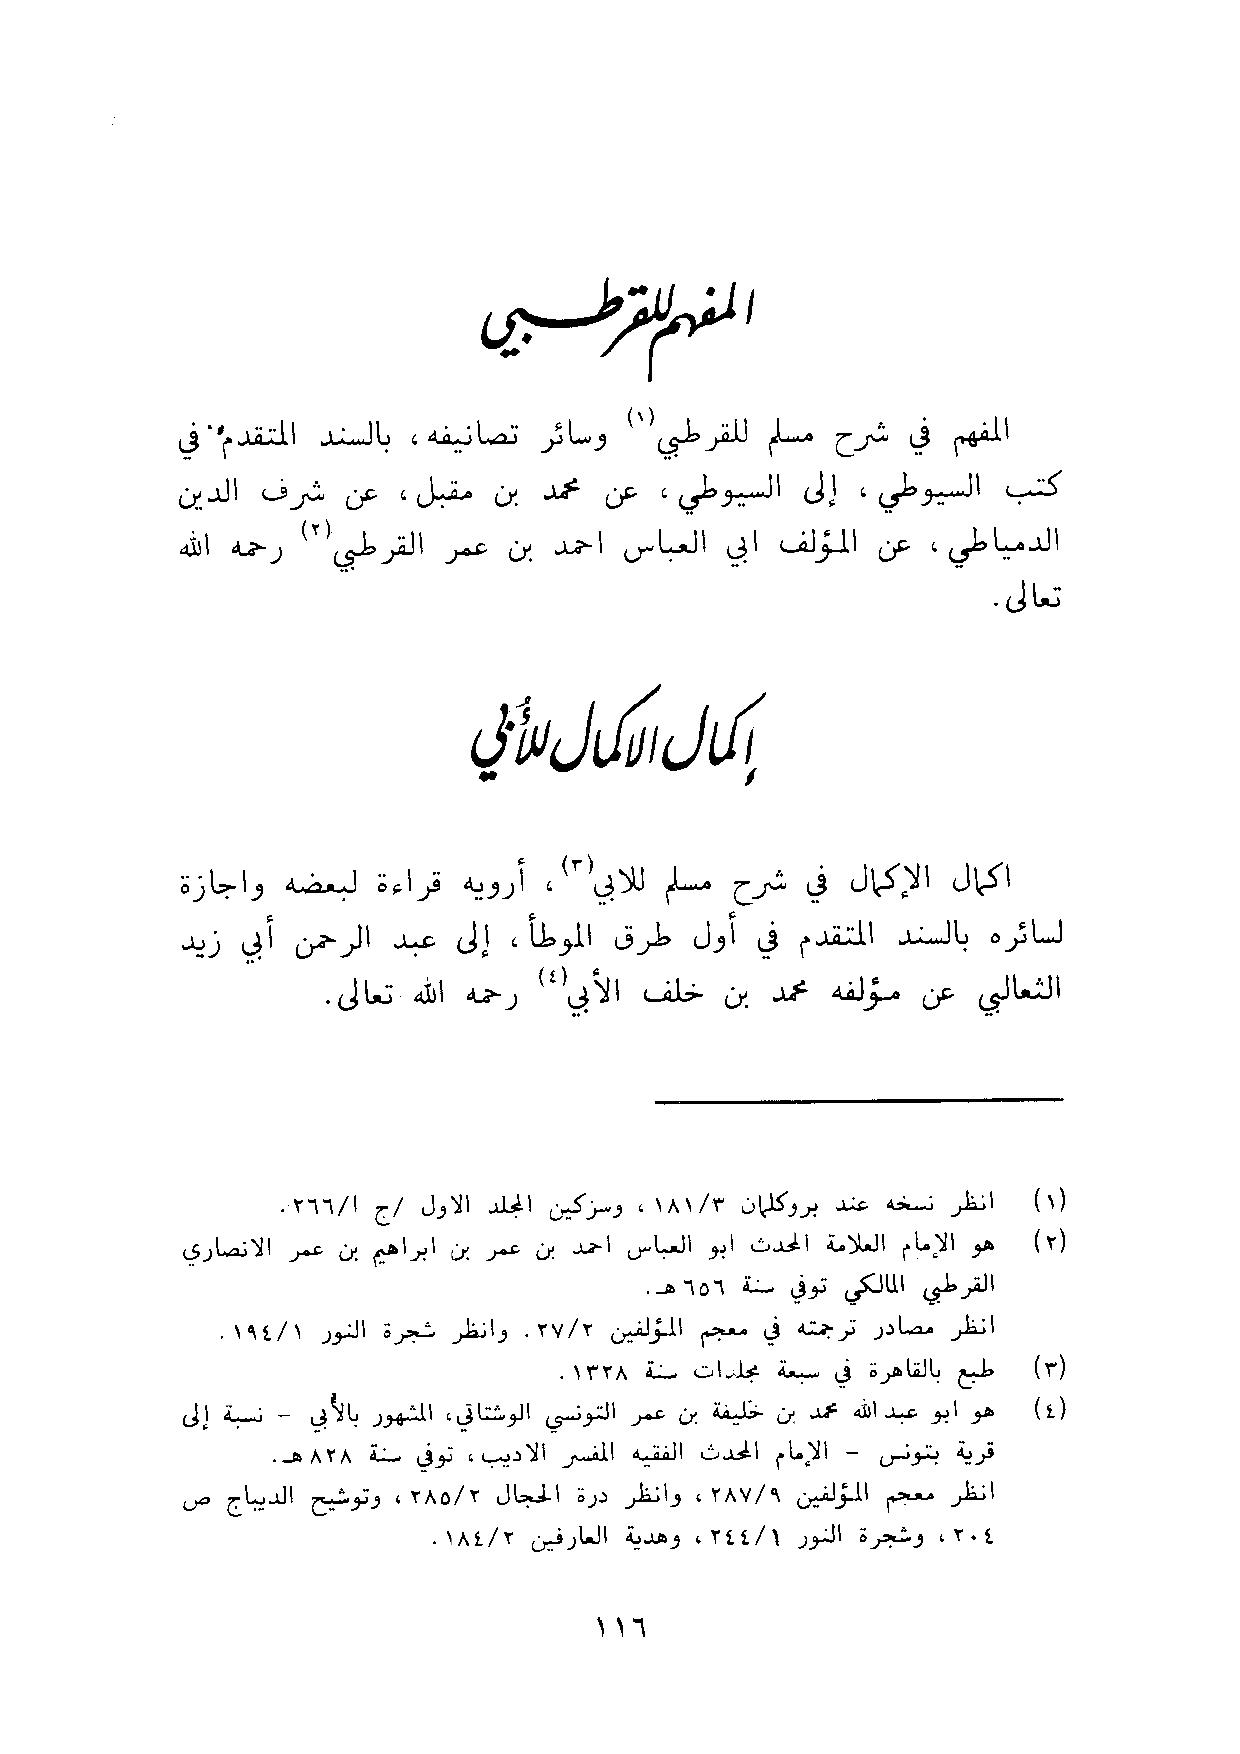 المفهم للقرطبي
المفهم في شرح مسلم للقرطبي(١) وسائر تصانيفه، بالسند المتقدم في
كتب السيوطي، إلى السيوطي، عن محمد بن مقبل، عن شرف الدين
الدمياطي، عن المؤلف ابي العباس احمد بن عمر القرطبي(٢) رحمه الله
تعالى.
إكمال الاكمال للأبي
اكمال الإكمال في شرح مسلم للابي(٣)، أرويه قراءة لبعضه واجازة
لسائره بالسند المتقدم في أول طرق الموطأ، إلى عبد الرحمن أبي زيد
الثعالبي عن مؤلفه محمد بن خلف الأبي(٤) رحمه الله تعالى.
(١) انظر نسخه عند بروكلمان ١٨١/٣، وسزكين المجلد الاول /ج ا/٢٦٦.
(٢) هو الإمام العلامة المحدث ابو العباس احمد بن عمر بن ابراهيم بن عمر الانصاري
القرطبي المالكي توفي سنة ٦٥٦ هـ.
انظر مصادر ترجمته في معجم المؤلفين ٢٧/٢. وانظر شجرة النور ١٩٤/١.
(٣) طبع بالقاهرة في سبعة مجلدات سنة ١٣٢٨.
(٤) هو ابو عبدالله محمد بن خليفة بن عمر التونسي الوشتاتي، المشهور بالأبي – نسبة إلى
قرية بتونس – الإمام المحدث الفقيه المفسر الاديب، توفي سنة ٨٢٨ هـ.
انظر معجم المؤلفين ٢٨٧/٩، وانظر درة الحجال ٢٨٥/٢، وتوشيح الديباج ص
٢٠٤، وشجرة النور ٢٤٤/١، وهدية العارفين ١٨٤/٢.
١١٦